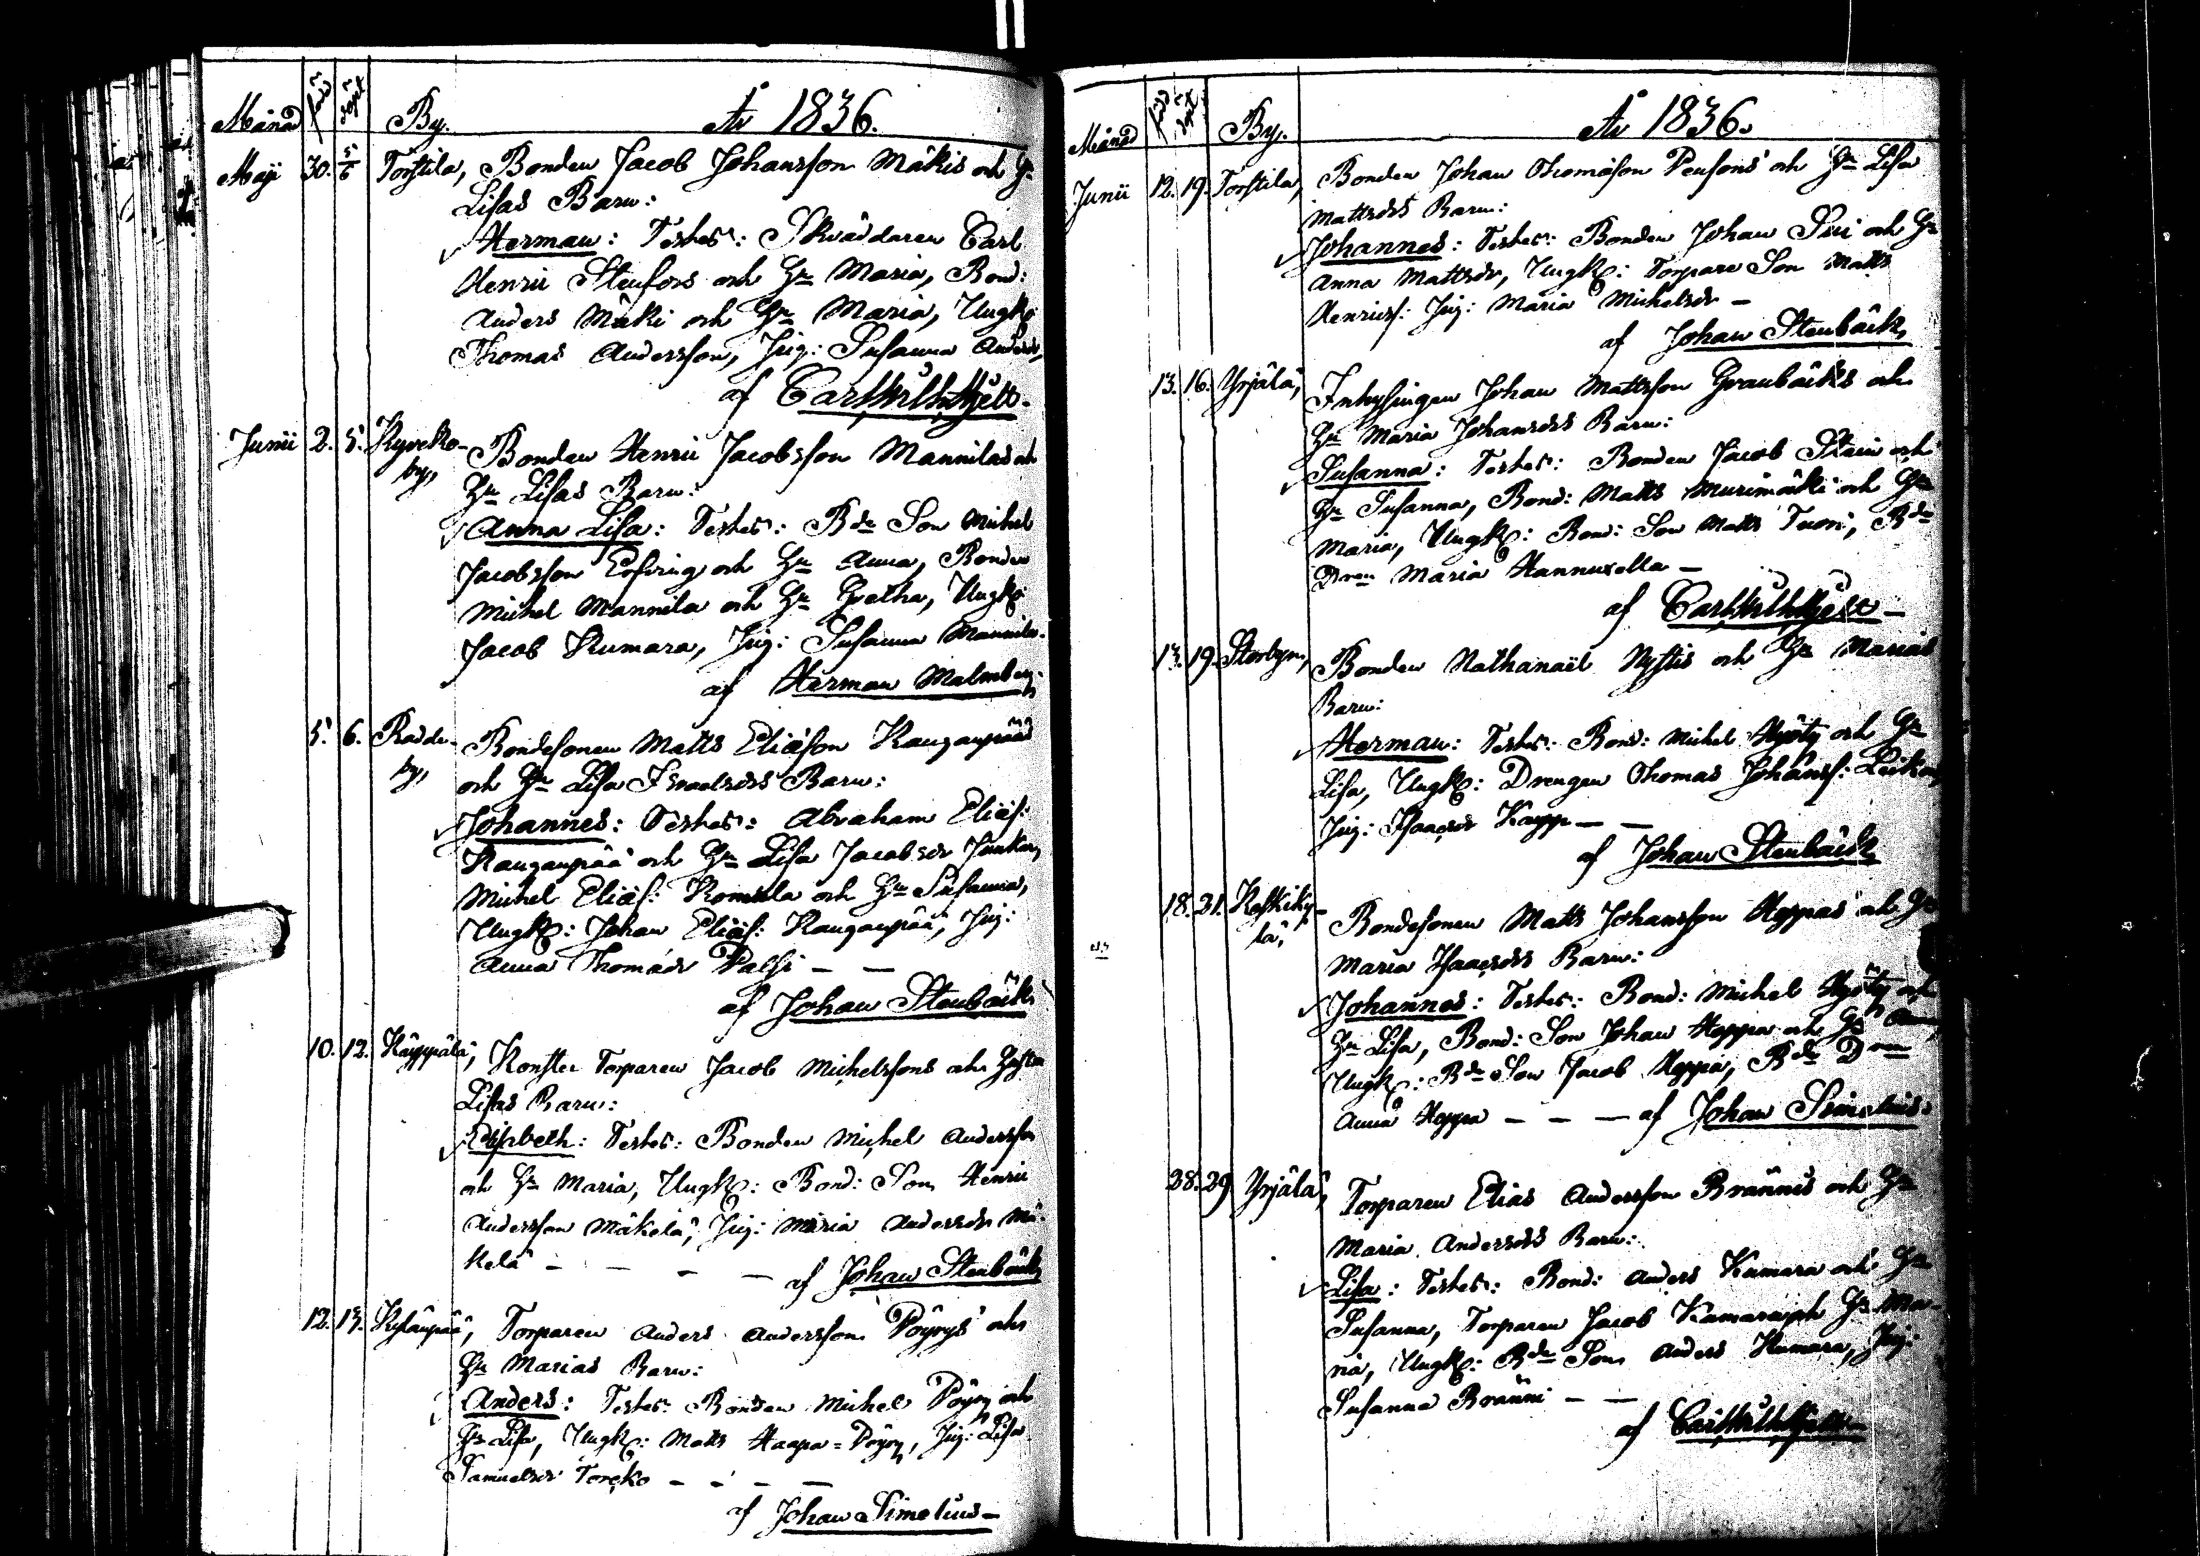 Månad född döpt By. År 1836.
Maji 30. 5/6 Torstila, Bonden Jacob Johansson Mäkis och H:
Lisas Barn:
Herman: Testes: Skräddaren Carl
Henric Stenfors och H:u Maria, Bond:
Anders Mäki och H:u Maria, Ungk:
Thomas Andersson, Pig: Susanna Anders
af Carl Wilh Hjelt.
Junii 2. 5. Kyrcko- Bonden Henric Jacobsson Mannilas och
by, H:u Lisas Barn:
Anna Lisa: Testes: Bde Son Michel
Jacobsson Erfving och H:u Anna, Bonden
Michel Mannila och H:u Gretha, Ungk:
Jacob Kumara, Pig: Susanna Mannila.
af Herman Malmberg.
5. 6. Radde- Bondesonen Matts Eliæson Kanganpääs
by, och H:u Lisa Israelsdrs Barn:
Johannes: Testes: Abraham Eliæs:
Kanganpää och H:u Lisa Jacobsdr Junkar,
Michel Eliæs: Komsila och H:u Susanna,
Ungk: Johan Eliæs: Kanganpää, Pig:
Anna Thomædr Palsi — —
af Johan Stenbäck.
10. 12. Käppälä, Konster Torparen Jacob Michelssons och Hustru
Lisas Barn:
Elisabeth: Testes: Bonden Michel Andersson
och H:u Maria, Ungk: Bond: Son Henric
Andersson Mäkelä, Pig: Maria Andersdr Mä-
kelä — — — — af Johan Stenbäck
12. 13. Kylänpää, Torparen Anders Andersson Pöyrys och
H:u Marias Barn:
Anders: Testes: Bonden Michel Pöyry och
H:u Lisa, Ungk: Matts Haapa=Pöyry, Pig: Lisa
Samuelsdr Torcko — — — —
af Johan Simelius —
Månad född döpt By. År 1836.
Junii 12. 19. Torstila, Bonden Johan Thomæson Pensons och H:u Lisa
Mattsdrs Barn:
Johannes: Testes: Bonden Johan Sui och H:u
Anna Mattsdr, Ungk: Torpare Son Matts
Henrics: Pig: Maria Michelsdr —
af Johan Stenbäck,
13. 16. Yrjälä, Inhysingen Johan Mattsson Granbäcks och
H:u Maria Johansdrs Barn:
Susanna: Testes: Bonden Jacob Stain och
H:u Susanna, Bond: Matts Murimäki och H:u
Maria, Ungk: Bond: Son Matts Tuori, Bde
Dren Maria Hannuxella —
af Carl Wilh Hjelt —
13. 19. Storbyn, Bonden Nathanaël Nystis och H:u Marias
Barn:
Herman: Testes: Bond: Michel Hyöty och H:u
Lisa, Ungk: Drengen Thomas Johans: Leikas,
Pig: Isaacsdr Kaypp — —
af Johan Stenbäck
18. 21. Keskiky- Bondesonen Matts Johansson Heppas och H:u
lä, Maria Isaacsdrs Barn:
Johannes: Testes: Bond: Michel Hyöty och
H:u Lisa, Bond: Son Johan Heppa och H:u Anna,
Ungk: Bde Son Jacob Heppa, Bde Dren
Anna Heppa — — — af Johan Simelius.
28. 29 Yrjälä, Torparen Elias Andersson Brännis och H:u
Maria Andersdrs Barn:
Lisa: Testes: Bond: Anders Kumara och H:u
Susanna, Torparen Jacob Kamara och H:u Ma-
ria, Ungk: Bde Son Anders Kumara, Pig:
Susanna Bränni — —
af Carl Wilh Hjelt —